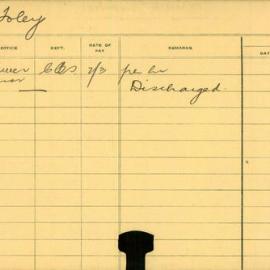 Foley
OFFICE DEPT. RATE OF PAY REMARKS DAT
2/3 per hr
Discharged.